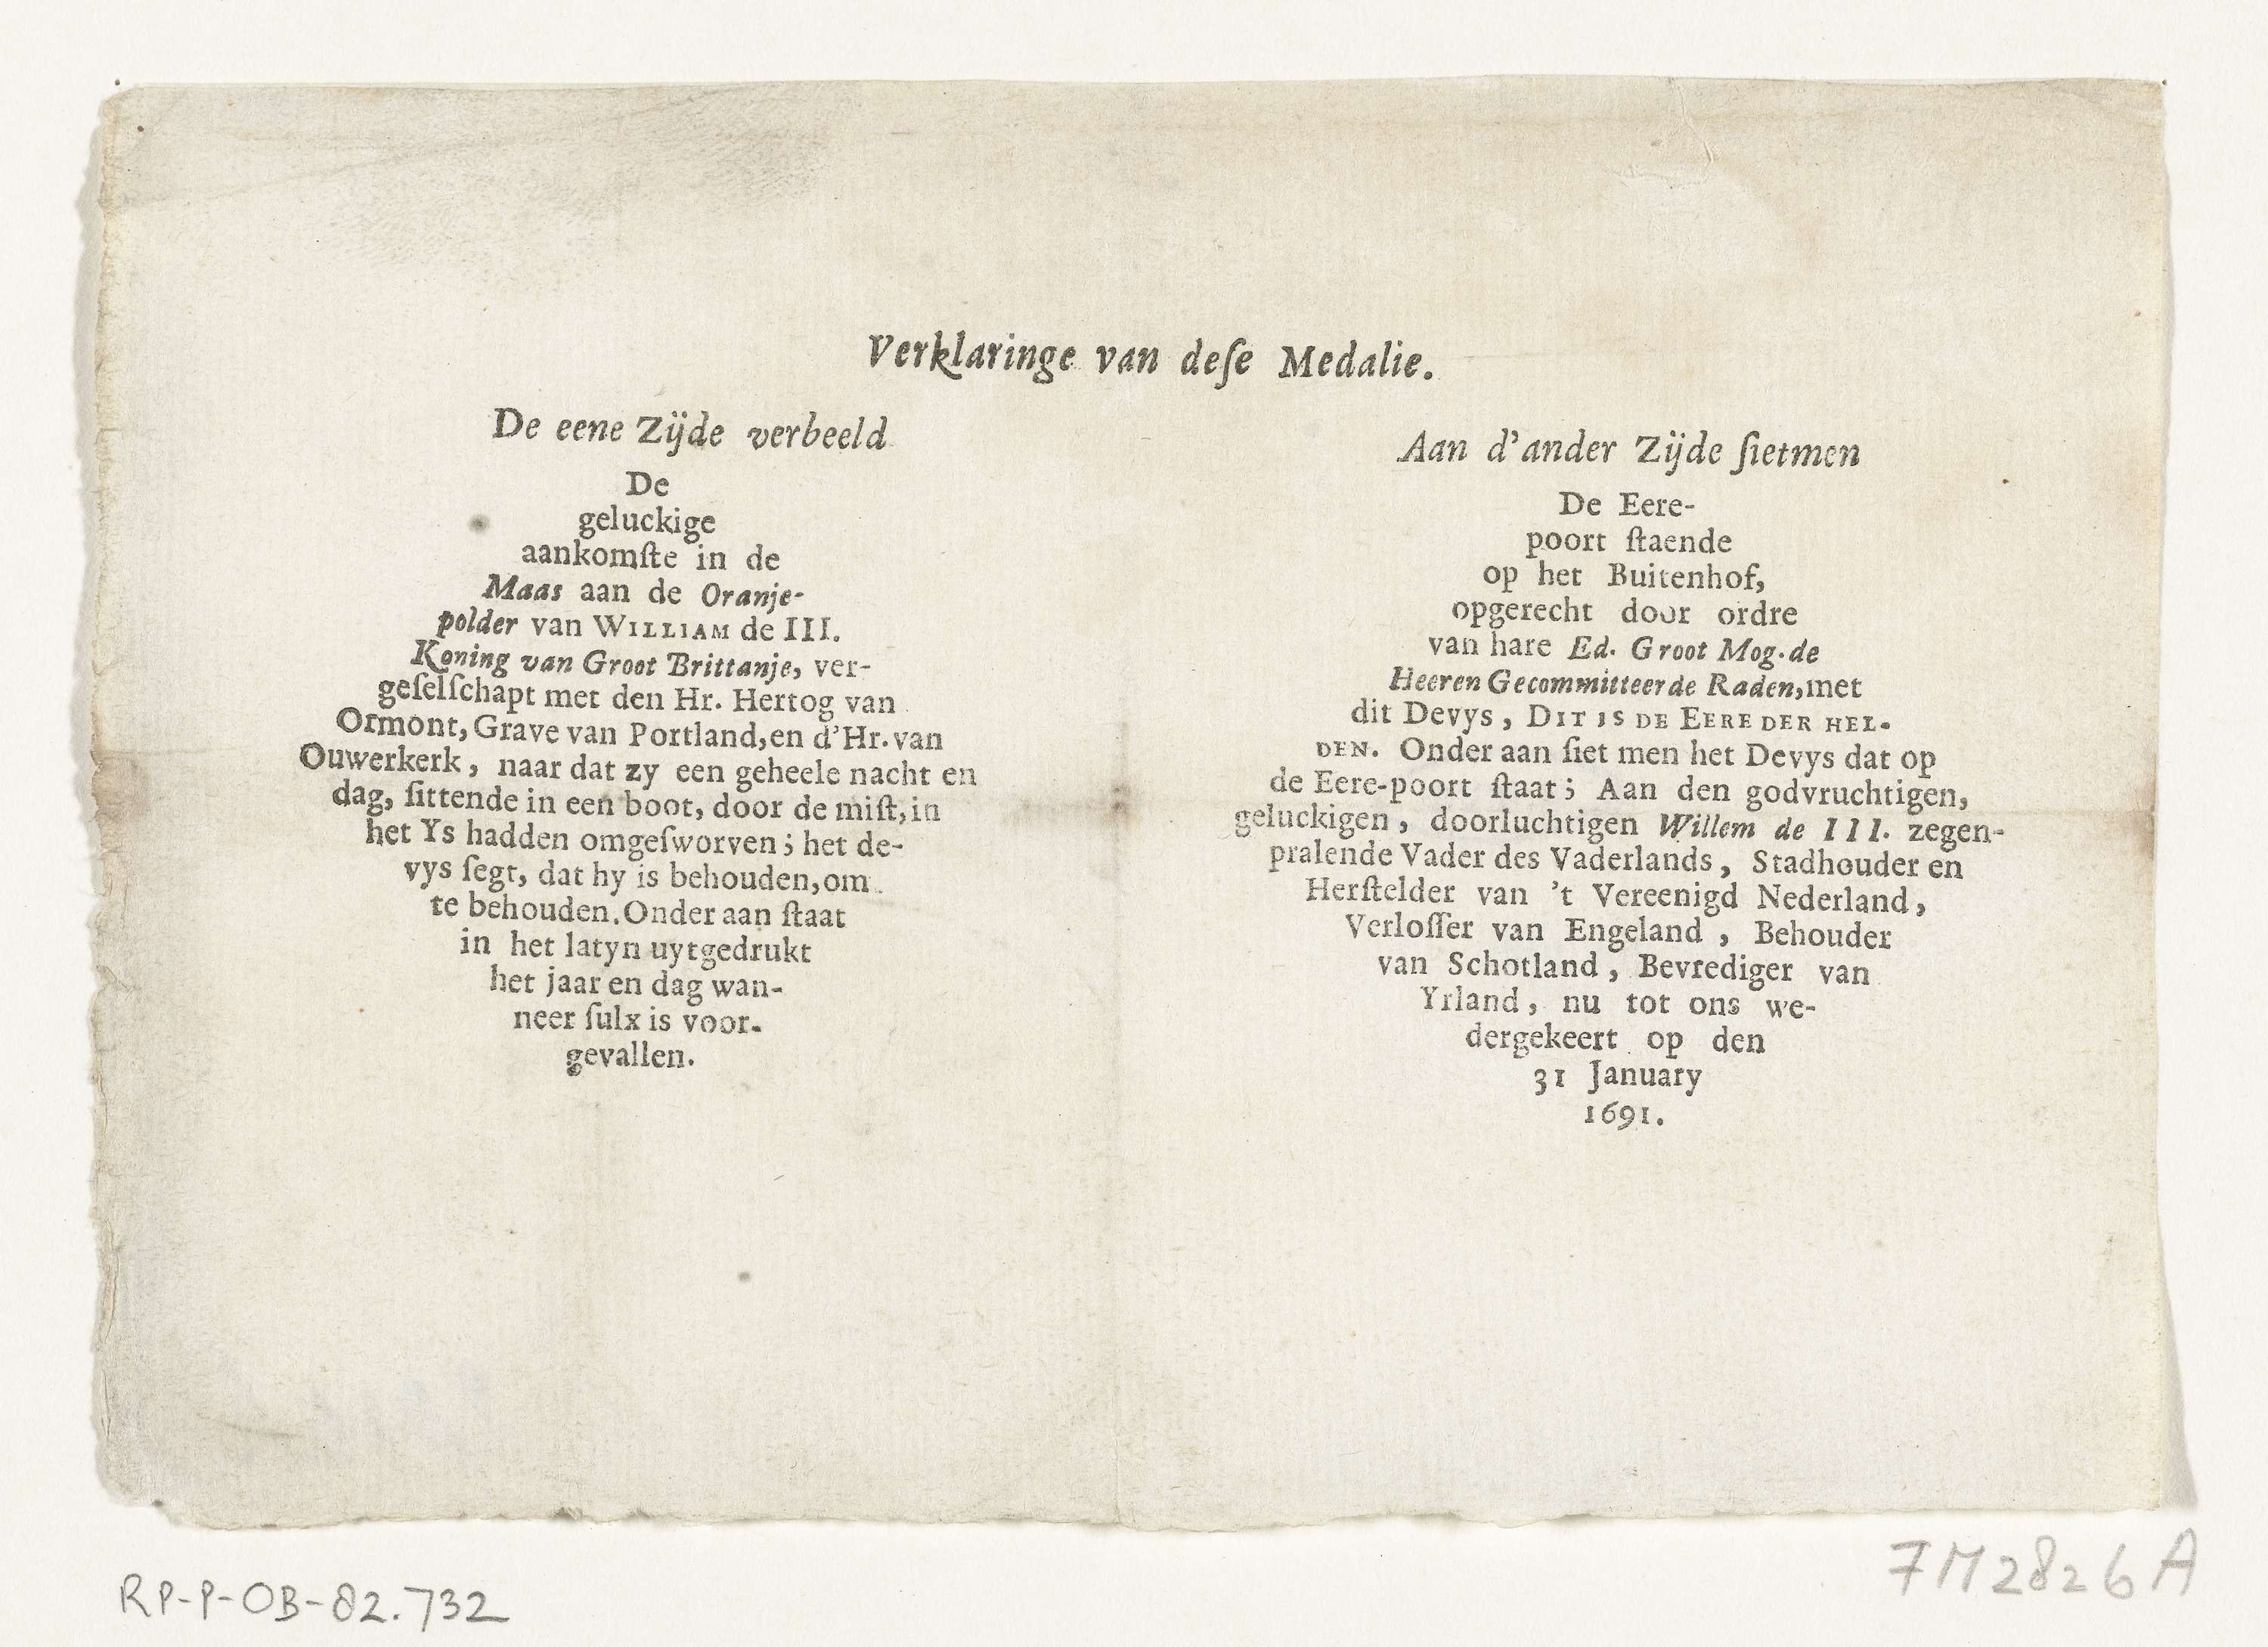 Verklaringe van deſe Medalie.
De eene Zijde verbeeld
De
geluckige
aankomſte in de
Maas aan de Oranje-
polder van WILLIAM de III.
Koning van Groot Brittanje, ver-
geſelſchapt met den Hr. Hertog van
Ormont, Grave van Portland, en d'Hr. van
Ouwerkerk, naar dat zy een geheele nacht en
dag, ſittende in een boot, door de miſt, in
het Ys hadden omgeſworven; het de-
vys ſegt, dat hy is behouden, om
te behouden. Onder aan ſtaat
in het latyn uytgedrukt
het jaar en dag wan-
neer ſulx is voor-
gevallen.
Aan d'ander Zijde ſietmen
De Eere-
poort ſtaende
op het Buitenhof,
opgerecht door ordre
van hare Ed. Groot Mog. de
Heeren Gecommitteerde Raden, met
dit Devys, DIT IS DE EERE DER HEL-
DEN. Onder aan ſiet men het Devys dat op
de Eere-poort ſtaat; Aan den godvruchtigen,
geluckigen, doorluchtigen Willem de III. zegen-
pralende Vader des Vaderlands, Stadhouder en
Herſtelder van 't Vereenigd Nederland,
Verloſſer van Engeland, Behouder
van Schotland, Bevrediger van
Yrland, nu tot ons we-
dergekeert op den
31 January
1691.
RP-P-OB-82.732
FM2826A